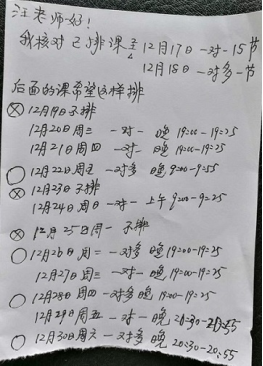 汪老师好！
我核对已排课至12月17日一对一15节
12月18日一对多一节
后面的课希望这样排
12月19日不排
12月20日周三 一对一 晚 19:00-19:25
12月21日周四 一对一 晚 19:00-19:25
12月22日周五 一对多 晚 9:00-9:55
12月23日不排
12月24日周日 一对一 上午 9:00-9:25
12月25日周一 不排
12月26日周二 一对多 晚 19:00-19:25
12月27日周三 一对一 晚 19:00-19:25
12月28日周四 一对多 晚 19:00-19:25
12月29日周五 一对一 晚 20:30-20:55
12月30日周六 一对多 晚 20:30-20:55